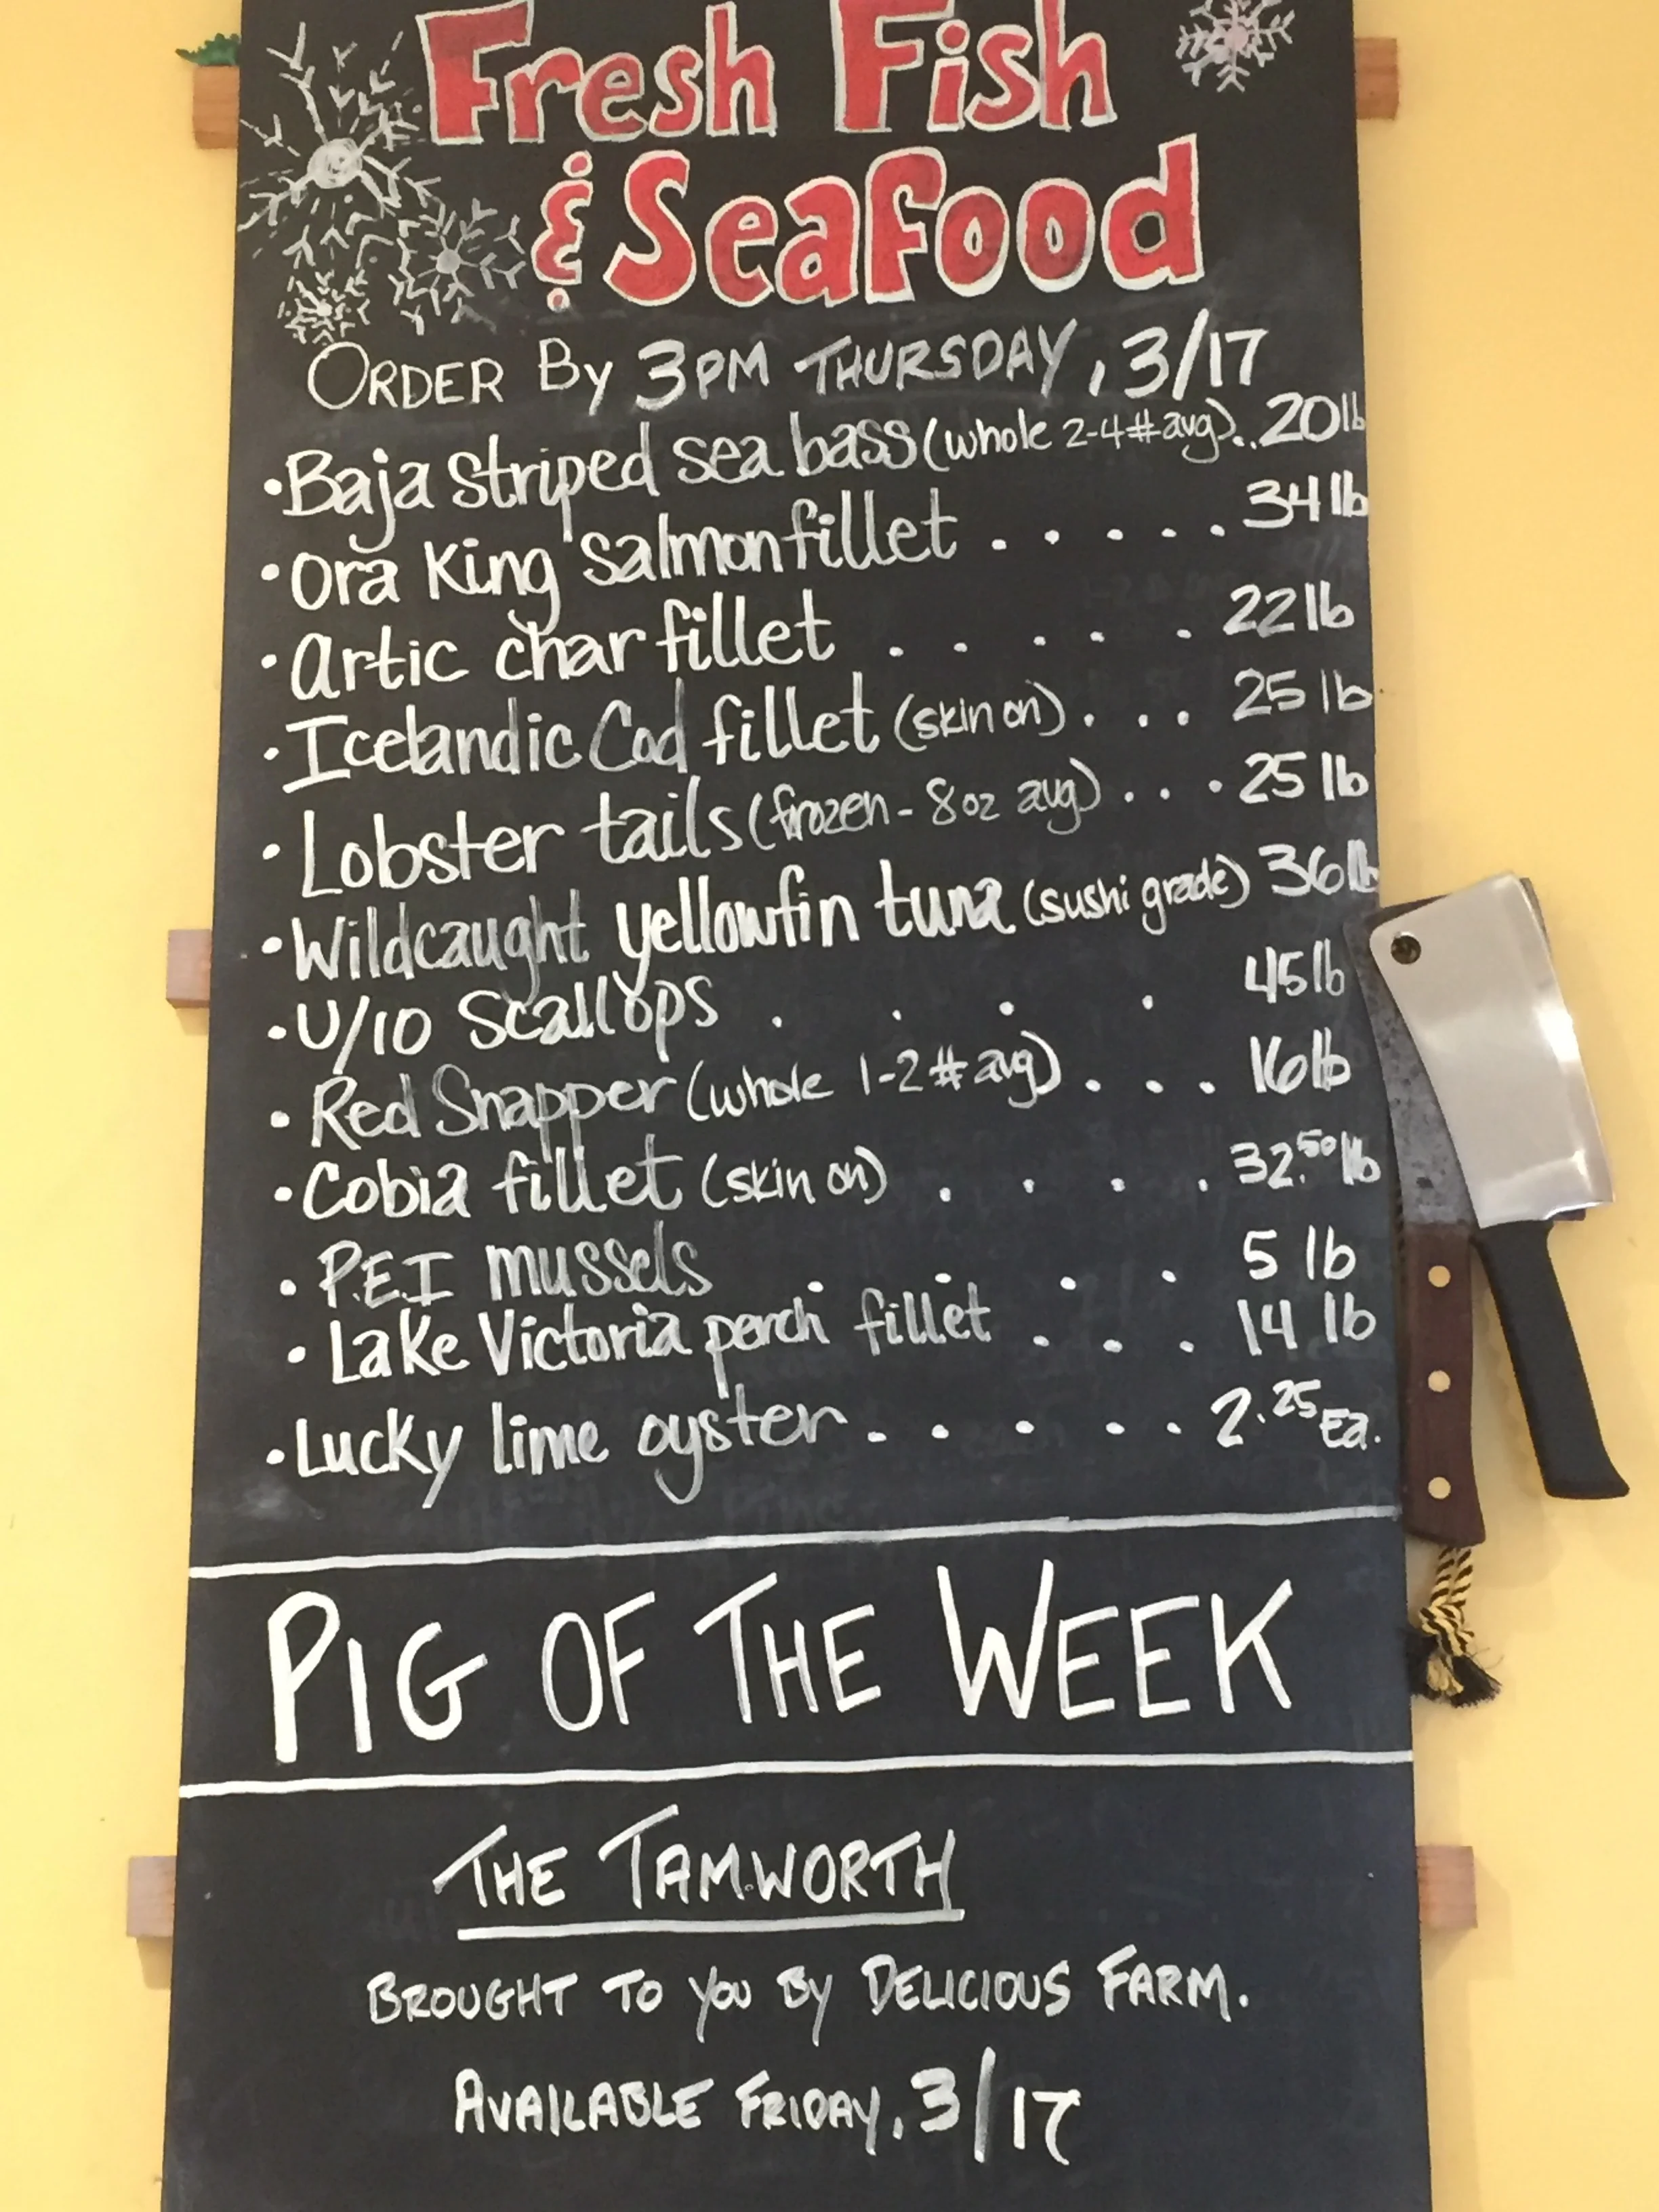 Fresh Fish
& Seafood
ORDER By 3PM THURSDAY, 3/17
•Baja striped sea bass (whole 2-4# avg)..20lb
•Ora King salmon fillet.....34lb
•Artic char fillet.....22lb
•Icelandic Cod fillet (skin on)...25lb
•Lobster tails (frozen-8oz avg)...25lb
•Wildcaught yellowfin tuna (sushi grade) 36lb
•U/10 Scallops....45lb
•Red Snapper (whole 1-2# avg)...16lb
•Cobia fillet (skin on)....32.50lb
•P.E.I mussels....5lb
•Lake Victoria perch fillet...14lb
•Lucky lime oyster.....2.25Ea.
PIG OF THE WEEK
THE TAMWORTH
BROUGHT TO you By DELICIOUS FARM.
AVAILABLE FRIDAY, 3/17